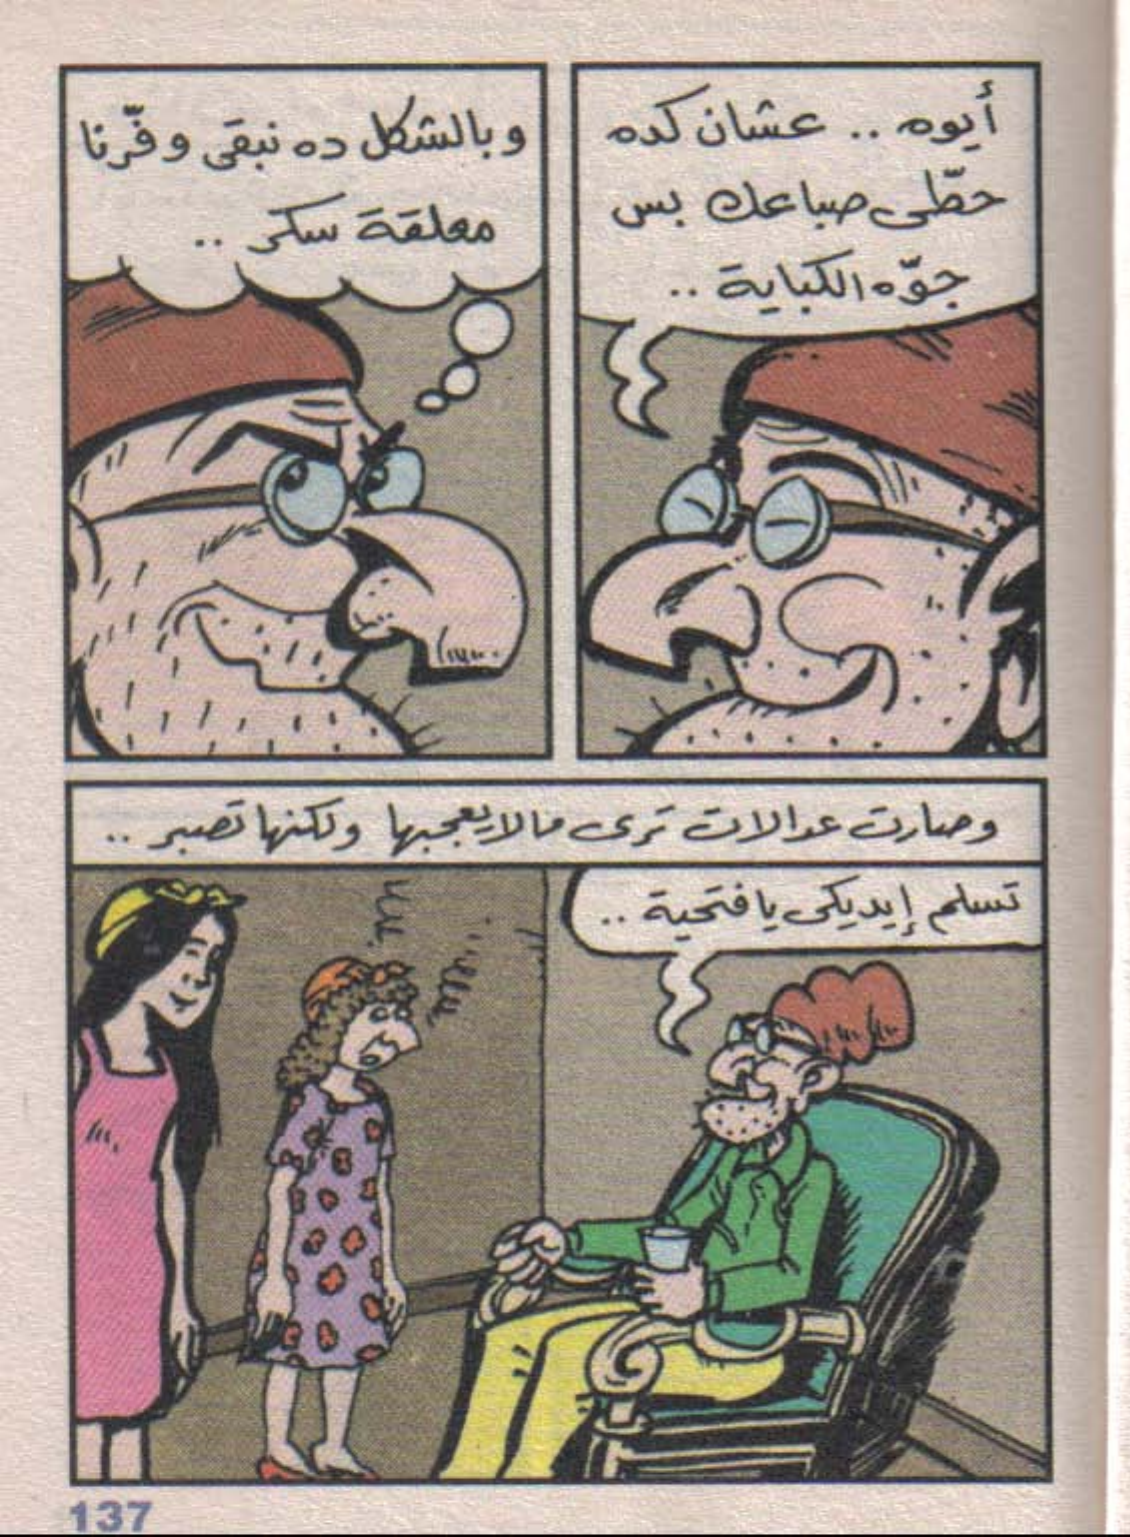 أيوه .. عشان كده
حطّى صباعك بس
جوّه الكباية ..
وبالشكل ده نبقى وفّرنا
معلقة سكر ..
وصارت عدالات ترى مالا يعجبها ولكنها تصبر ..
تسلم إيديكى يا فتحية ..
137